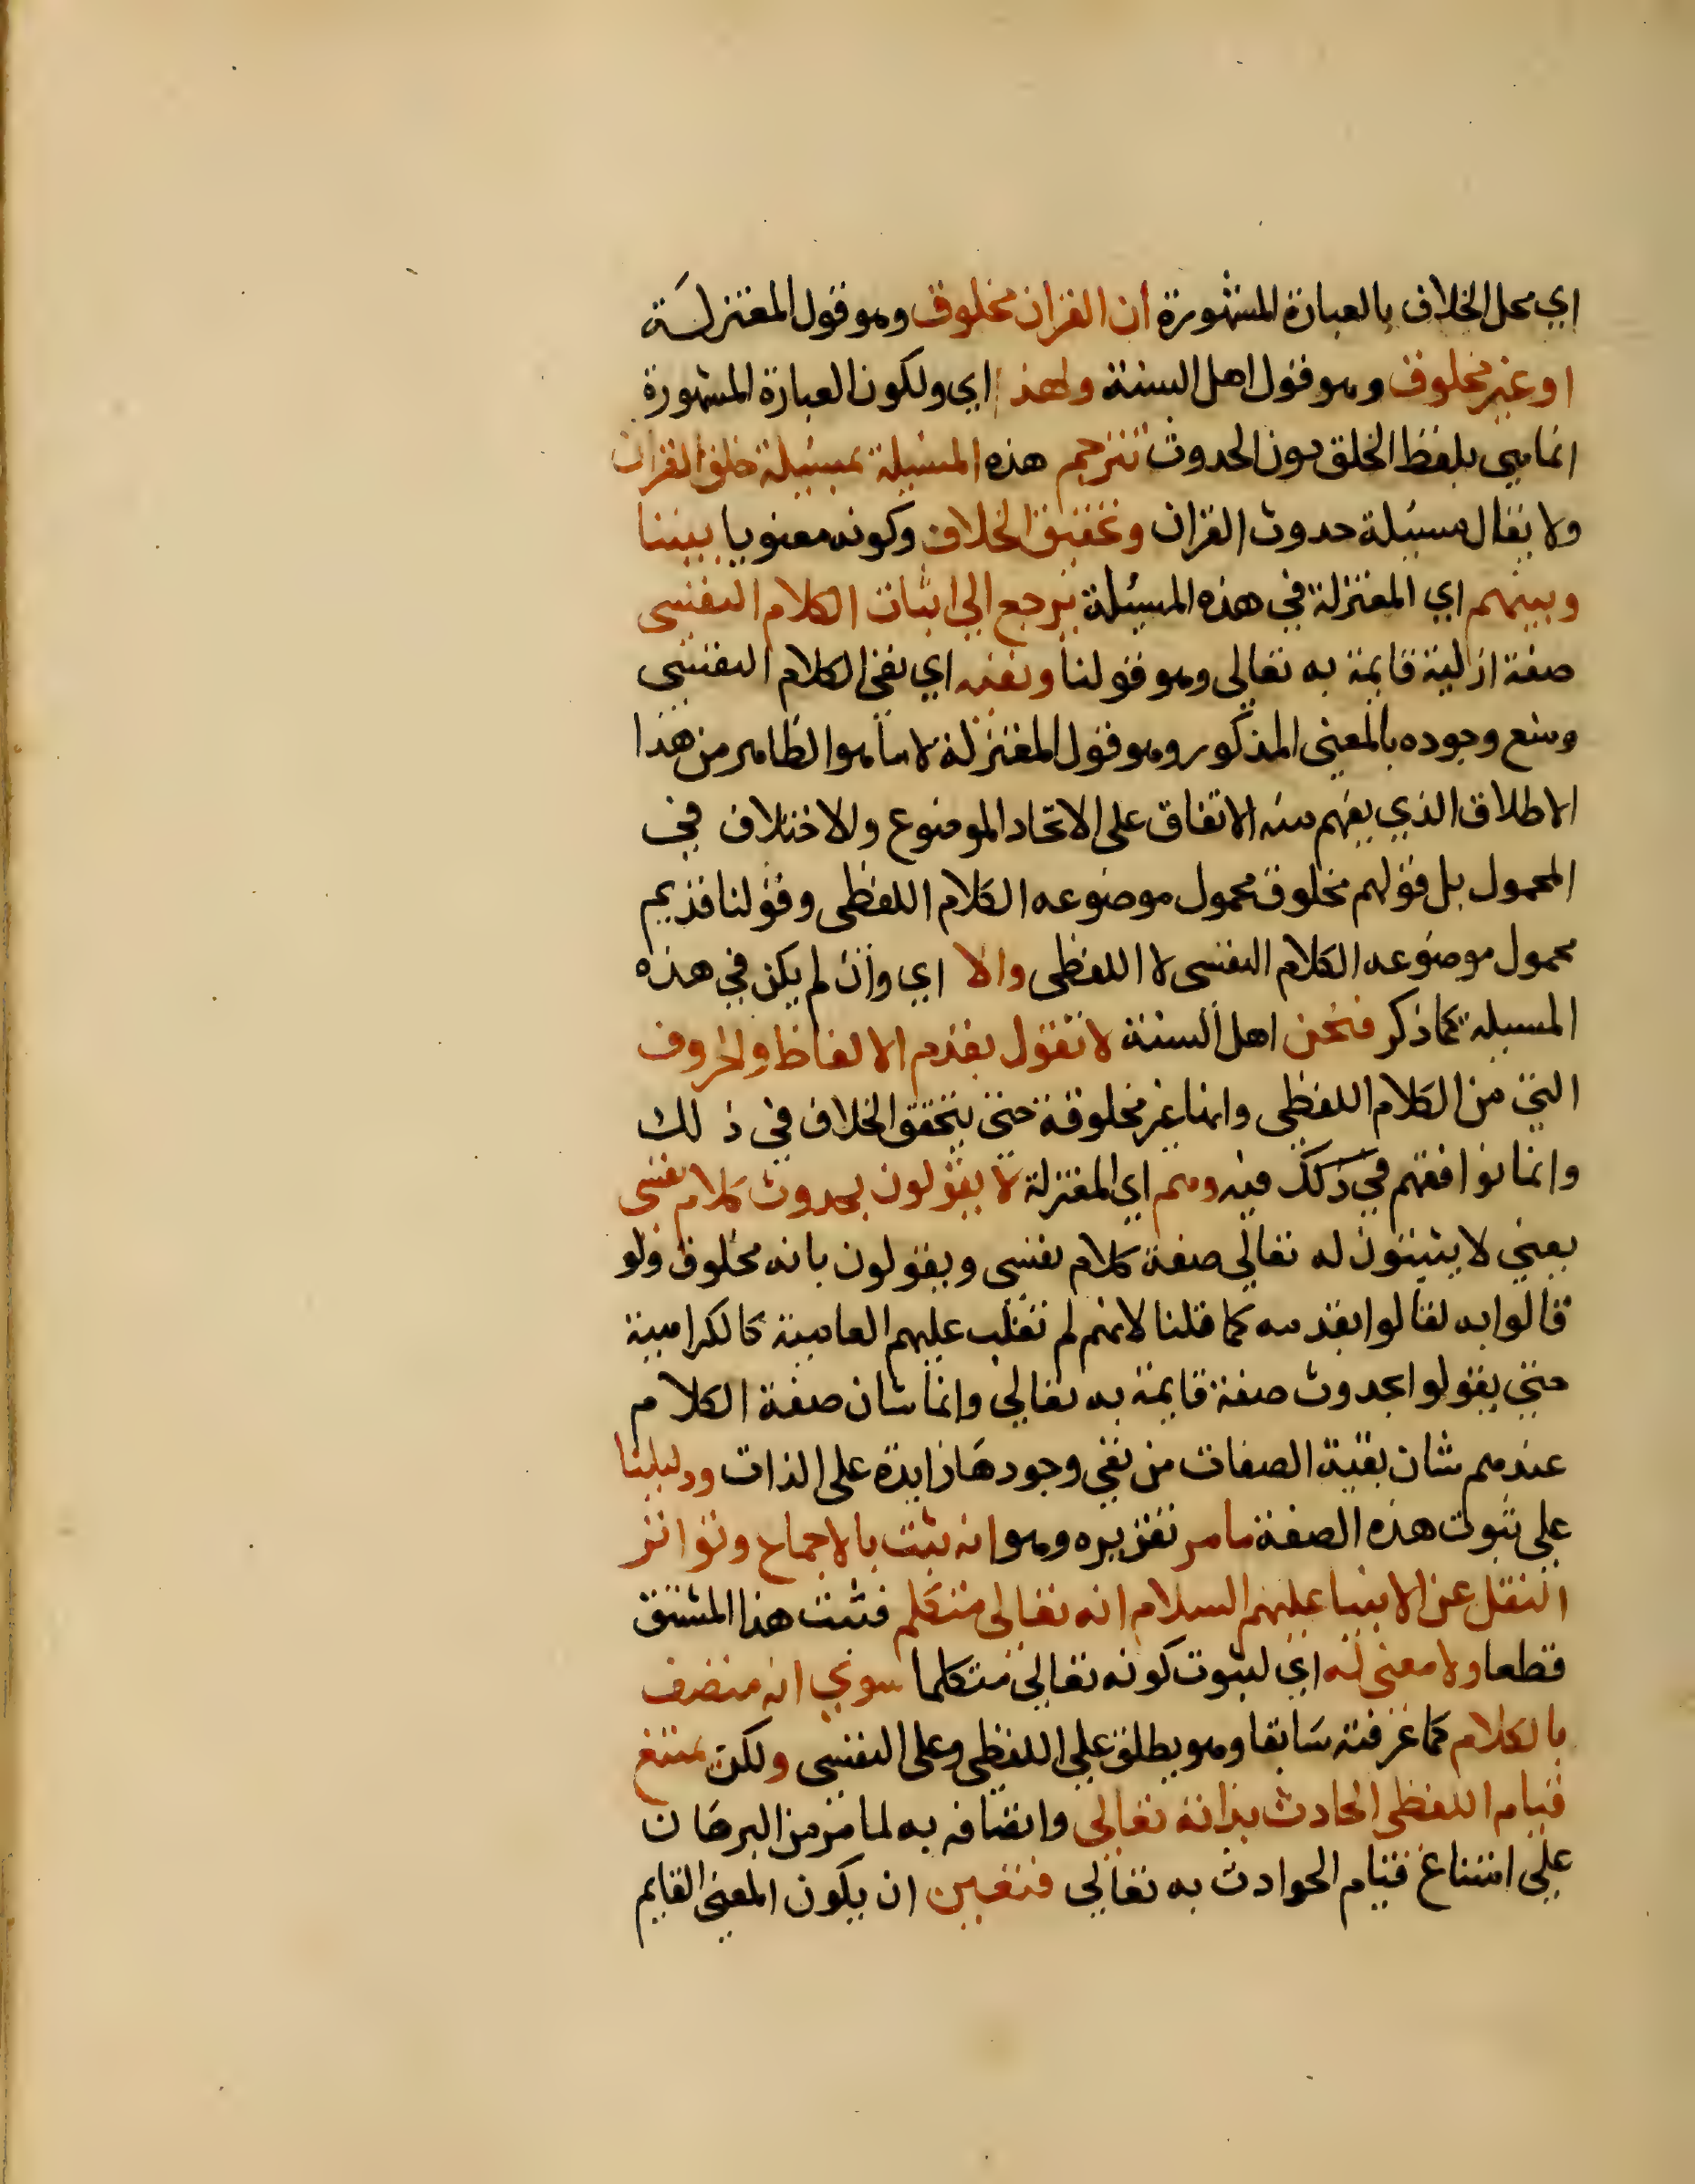 اي محل الخلاف بالعبارة المشهورة ان القران مخلوق وهو قول المعتزلة
او غير مخلوق وهو قول اهل السنة ولهذا اي ولكون العبارة المشهورة
انما هي بلفظ الخلق دون الحدوث تترجم هذه المسئلة بمسئلة خلق القران
ولا يقال مسئلة حدوث القران وتحقيق الخلاف وكونه معنويا بيننا
وبينهم اي المعتزلة في هذه المسئلة يرجع الي اثبات الكلام النفسي
صفة ازلية قايمة به تعالي وهو قولنا ونفيه اي نفي الكلام النفسي
ومنع وجوده بالمعني المذكور وهو قول المعتزلة لا ما هو الظاهر من هذا
الاطلاق الذي يفهم منه الاتفاق علي الاتحاد الموضوع والاختلاف في
المحمول بل قولهم مخلوق محمول موضوعه الكلام اللفظي وقولنا قديم
محمول موضوعه الكلام النفسي لا اللفظي والا اي وان لم يكن في هذه
المسيلة كما ذكر فنحن اهل السنة لا نقول بقدم الالفاظ والحروف
التي من الكلام اللفظي وانها غير مخلوقة حتي يتحقق الخلاف في ذلك
وانما نوافقهم في ذلك فيه وهم اي المعتزلة لا يقولون بحدوث كلام نفسي
يعني لا يثبتون له تعالي صفة كلام نفسي ويقولون بانه مخلوق ولو
قالوا به لقالوا بقدمه كما قلنا لانهم لم تغلب عليهم العامية كالكرامية
حتي يقولوا بحدوث صفة قايمة به تعالي وانما شان صفة الكلام
عندهم شان بقية الصفات من نفي وجودها زايدة علي الذات ودليلنا
علي ثبوت هذه الصفة ما مر تقريره وهو انه ثبت بالاجماع وتواتر
النقل عن الانبيا عليهم السلام انه تعالي متكلم فثبت هذا المشتق
قطعا ولا معني له اي لثبوت كونه تعالي متكلما سوي انه متصف
بالكلام كما عرفته سابقا وهو يطلق علي اللفظي وعلي النفسي ولكن يمتنع
قيام اللفظي الحادث بذاته تعالي واتصافه به لما مر من البرهان
علي امتناع قيام الحوادث به تعالي فتعين ان يكون المعني القايم